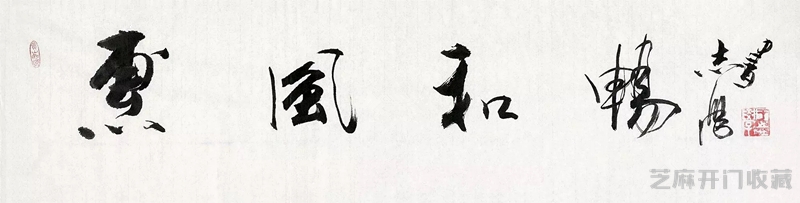 惠風和暢
芝麻开门收藏